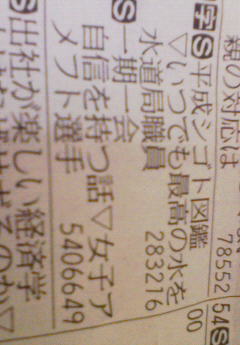 親の対応は 78552 54S
字S平成シゴト図鑑 00
▽いつでも最高の水を
水道局職員 283216
S一期一会
自信を持つ話▽女子ア
メフト選手 5406649
S出社が楽しい経済学